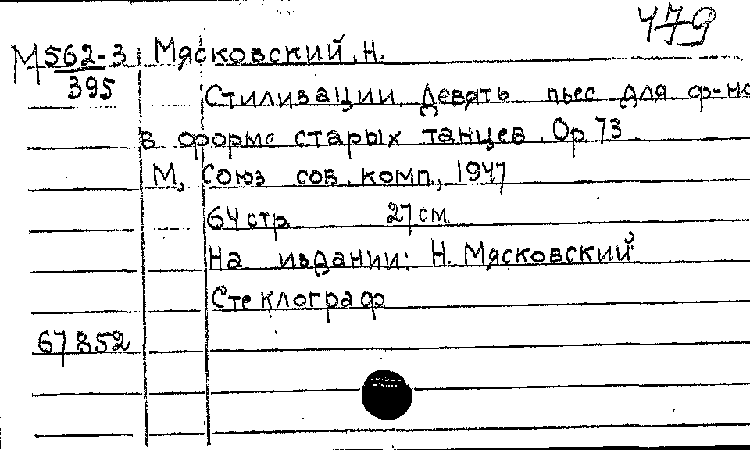 479
М 562-3 Мясковский, Н.
395
Стилизации. Девять пьес для ф-но
в форме старых танцев. Ор. 73.
М., Союз сов. комп., 1947
64 стр. 27 см.
На издании: Н. Мясковский
Стеклограф
67852